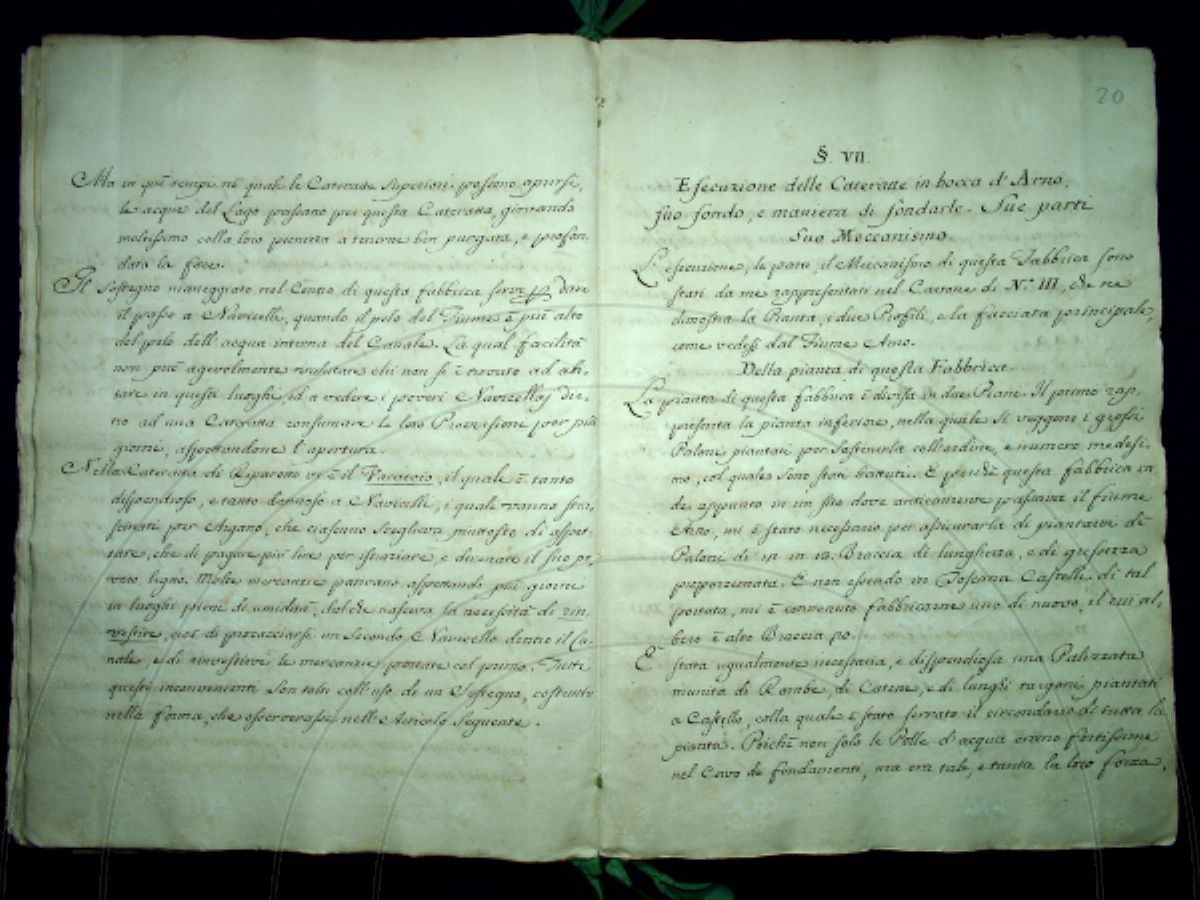 Ma in que' tempi ne' quali le Cateratte Superiori possono aprirsi,
le acque del Lago passano per questa Cateratta, giovando
moltissimo colla loro pienezza a tenerne ben purgata, e profon-
data la foce.
Il Sostegno maneggiato nel Centro di questa fabbrica serve p dare
il passo a Navicelli, quando il pelo del Fiume è più alto
del pelo dell' acqua interna del Canale. La qual facilità
non può agevolmente rifiutare chi non si è trovato ad abi-
tare in questi luoghi, ed a vedere i poveri Navicellaj die-
tro ad una Cateratta consumare le loro Provvisione per più
giorni, aspettandone l'apertura.
Nella Cateratta di Ripafratta vi è il, il quale è tanto
dispendioso, e tanto dannoso a Navicelli, i quali vanno stra-
scinati per Argano, che ciascuno sceglieva piuttosto di aspet-
tare, che di pagare più lire per istraziare, e divenare il suo po-
vero legno. Molte mercanzie pativano aspettando più giorni
in luoghi pieni di umidità, dal che nasceva la necessità di rin-
vestire, cioè di procacciarsi un secondo Navicello dentro il Ca-
nale, e di rinvestirve le mercanzie portate col primo. Tutti
questi inconvenienti son tolti coll' uso di un Sostegno, costruito
nella forma, che osserverassi nell' Articolo Seguente.
20
§. VII.
Esecuzione delle Cateratte in bocca d'Arno,
suo fondo, e maniera di fondarle. Sue parti
Suo Meccanismo.
L'esecuzione, le parti, il Meccanismo di questa Fabbrica sono
stati da me rappresentati nel Cartone di N.° III, che ne
dimostra la Pianta, i due Profili, e la facciata principale,
come vedesi dal Fiume Arno.
Della pianta di questa Fabbrica.
La pianta di questa fabbrica è divisa in due Piani. Il primo rap-
presenta la pianta inferiore, nella quale si veggono i grossi
Paloni piantati per sostenerla coll'ordine, e numero medesi-
mo, col quale sono stati battuti. E perchè questa fabbrica ca-
de appunto in un sito dove anticamente passava il fiume
Arno, mi è stato necessario per assicurarla di piantarvi de'
Paloni di in in 12. Braccia di lunghezza, e di grossezza
proporzionata. E non essendo in Toscana Castelli di tal
portata, mi è convenuto fabbricarne uno di nuovo, il cui al-
bero è alto Braccia 20.
E' stata ugualmente necessaria, e dispendiosa una Palizzata
munita di Rombe, di Catene, e di lunghi targoni piantati
a Castello, colla quale è stato serrato il circondario di tutta la
pianta. Poichè non solo le Polle d'acqua erano fortissime
nel Cavo de' fondamenti, ma era tale, e tanta la loro forza,